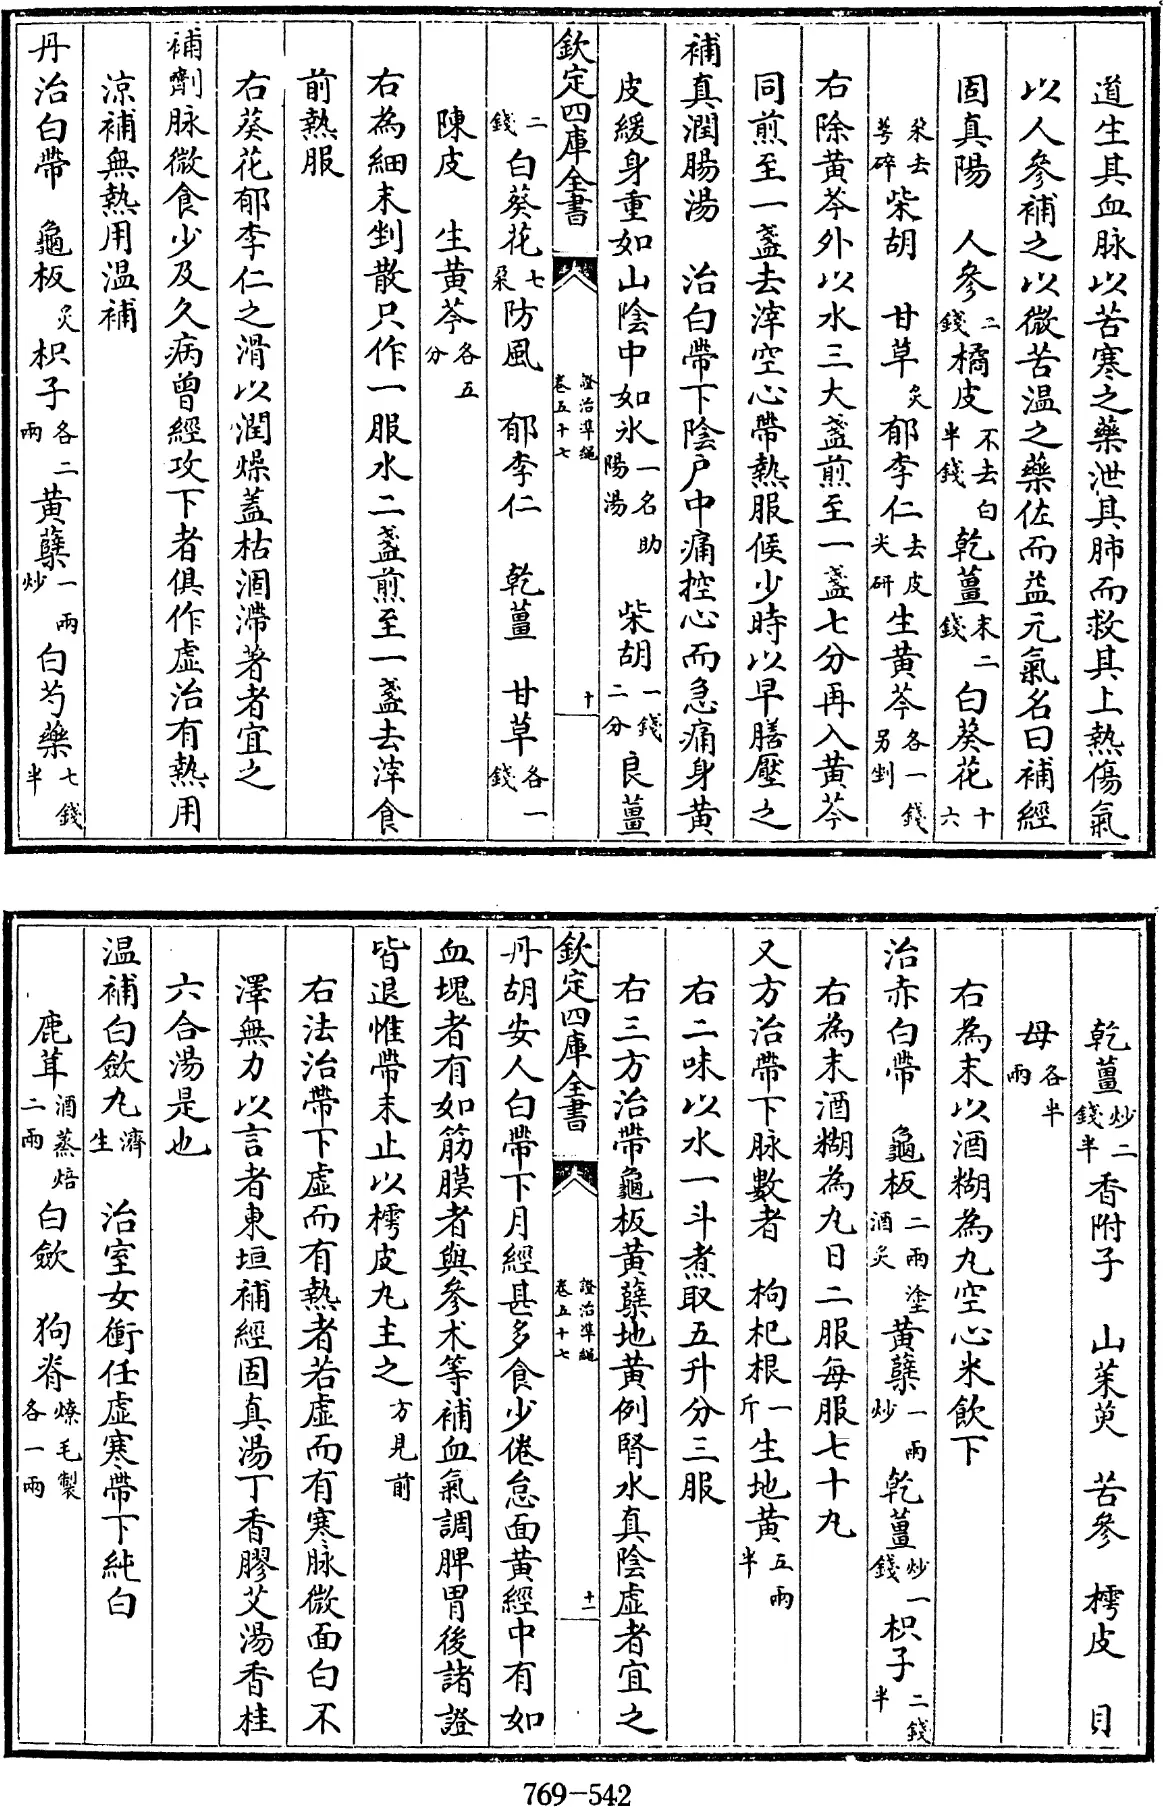 道生其血脉以苦寒之藥泄其肺而救其上熱傷氣
以人參補之以微苦温之藥佐而益元氣名曰補經
固真陽　人參二錢橘皮不去白半錢乾薑末二錢白葵花十六
朶去萼碎柴胡　甘草炙郁李仁去皮尖研生黄芩各一錢另剉
右除黄芩外以水三大盞煎至一盞七分再入黄芩
同煎至一盞去滓空心帶熱服候少時以早膳壓之
補真潤腸湯　治白帶下陰户中痛控心而急痛身黄
皮緩身重如山陰中如氷一名助陽湯　柴胡一錢二分良薑
欽定四庫全書　證治準繩卷五十七　十
二錢白葵花七朶防風　郁李仁　乾薑　甘草各一錢
陳皮　生黄芩各五分
右為細末剉散只作一服水二盞煎至一盞去滓食
前熱服
右葵花郁李仁之滑以潤燥蓋枯涸滯著者宜之
補劑脉微食少及久病曾經攻下者俱作虚治有熱用
涼補無熱用温補
丹治白帶　龜板炙枳子各二兩黄蘗一兩炒白芍藥七錢半
乾薑炒二錢半香附子　山茱萸　苦參　樗皮　貝
母各半兩
右為末以酒糊為丸空心米飲下
治赤白帶　龜板二兩塗酒炙黄蘗一兩炒乾薑炒一錢枳子二錢半
右為末酒糊為丸日二服每服七十丸
又方治帶下脉數者　枸杞根一斤生地黄五兩半
右二味以水一斗煮取五升分三服
右三方治帶龜板黄蘗地黄例腎水真陰虚者宜之
欽定四庫全書　證治準繩卷五十七　十一
丹胡安人白帶下月經甚多食少倦怠面黄經中有如
血塊者有如筋膜者與參术等補血氣調脾胃後諸證
皆退惟帶未止以樗皮丸主之方見前
右法治帶下虚而有熱者若虚而有寒脉微面白不
澤無力以言者東垣補經固真湯丁香膠艾湯香桂
六合湯是也
温補白歛丸濟生　治室女衝任虚寒帶下純白
鹿茸酒蒸焙二兩白歛　狗脊燎毛製各一兩
769-542